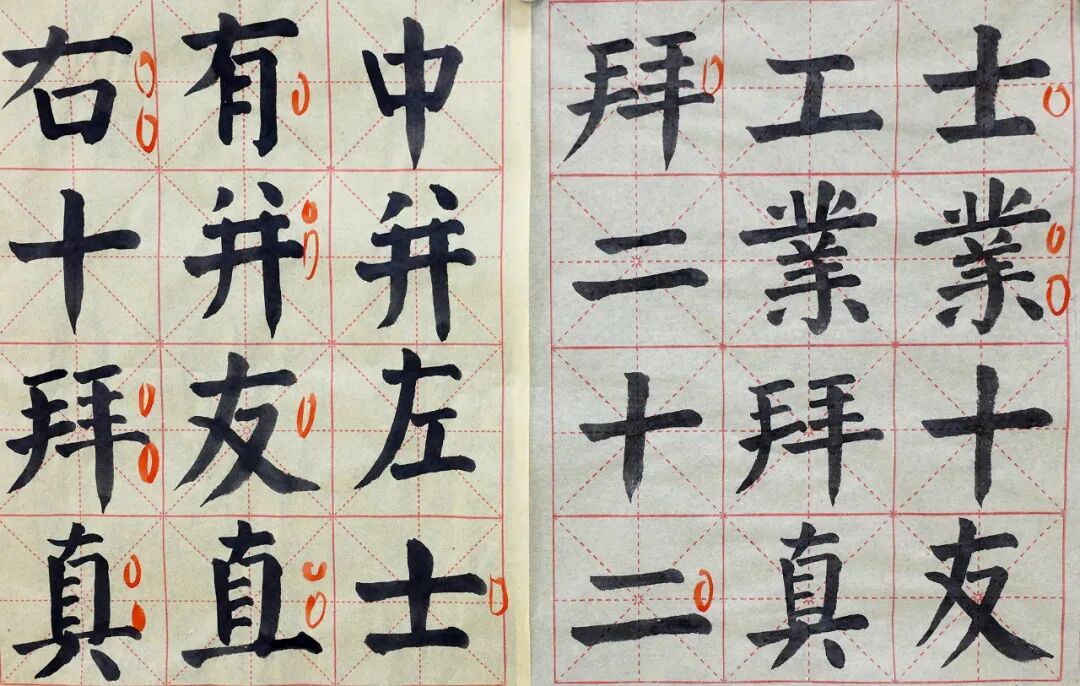 士業十友
工業拜真
拜二十二
中并左士
有并友直
右十拜真